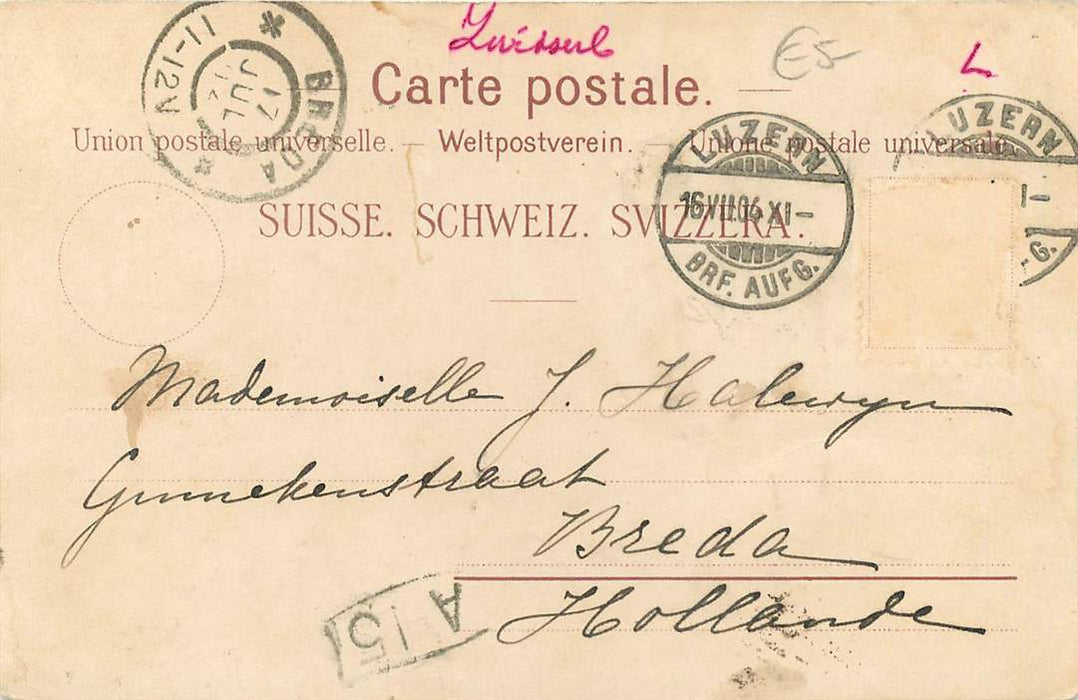 E5-
L
Carte postale.
Union postale universelle. — Weltpostverein. — Unione postale universale.
SUISSE. SCHWEIZ. SVIZZERA.
BREDA
17 JUL
11-12V
LUZERN
16.VII.04.XI-
BRF. AUFG.
LUZERN
I-
G.
Mademoiselle J. Halewyn
Ginnekenstraat
Breda
Hollande
A 15